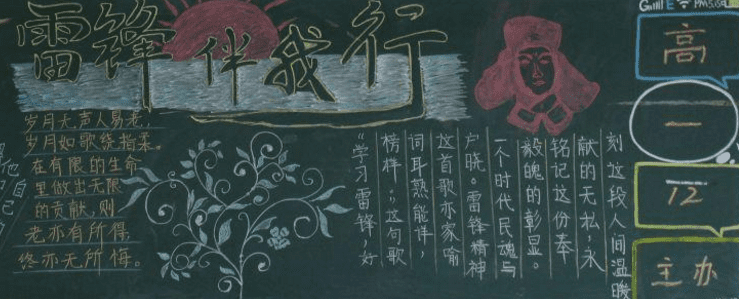 雷锋伴我行
岁月无声人易老,
岁月如歌绕指柔。
在有限的生命
里做出无限
的贡献,则
老亦有所得
终亦无所悔。
“学习雷锋,好
榜样。”这句歌
词耳熟能详,
这首歌亦家喻
户晓。雷锋精神
一个时代民魂与
毅魄的彰显。
铭记这份奉
献的无私,永
刻这段人间温暖
高
一
12
主办